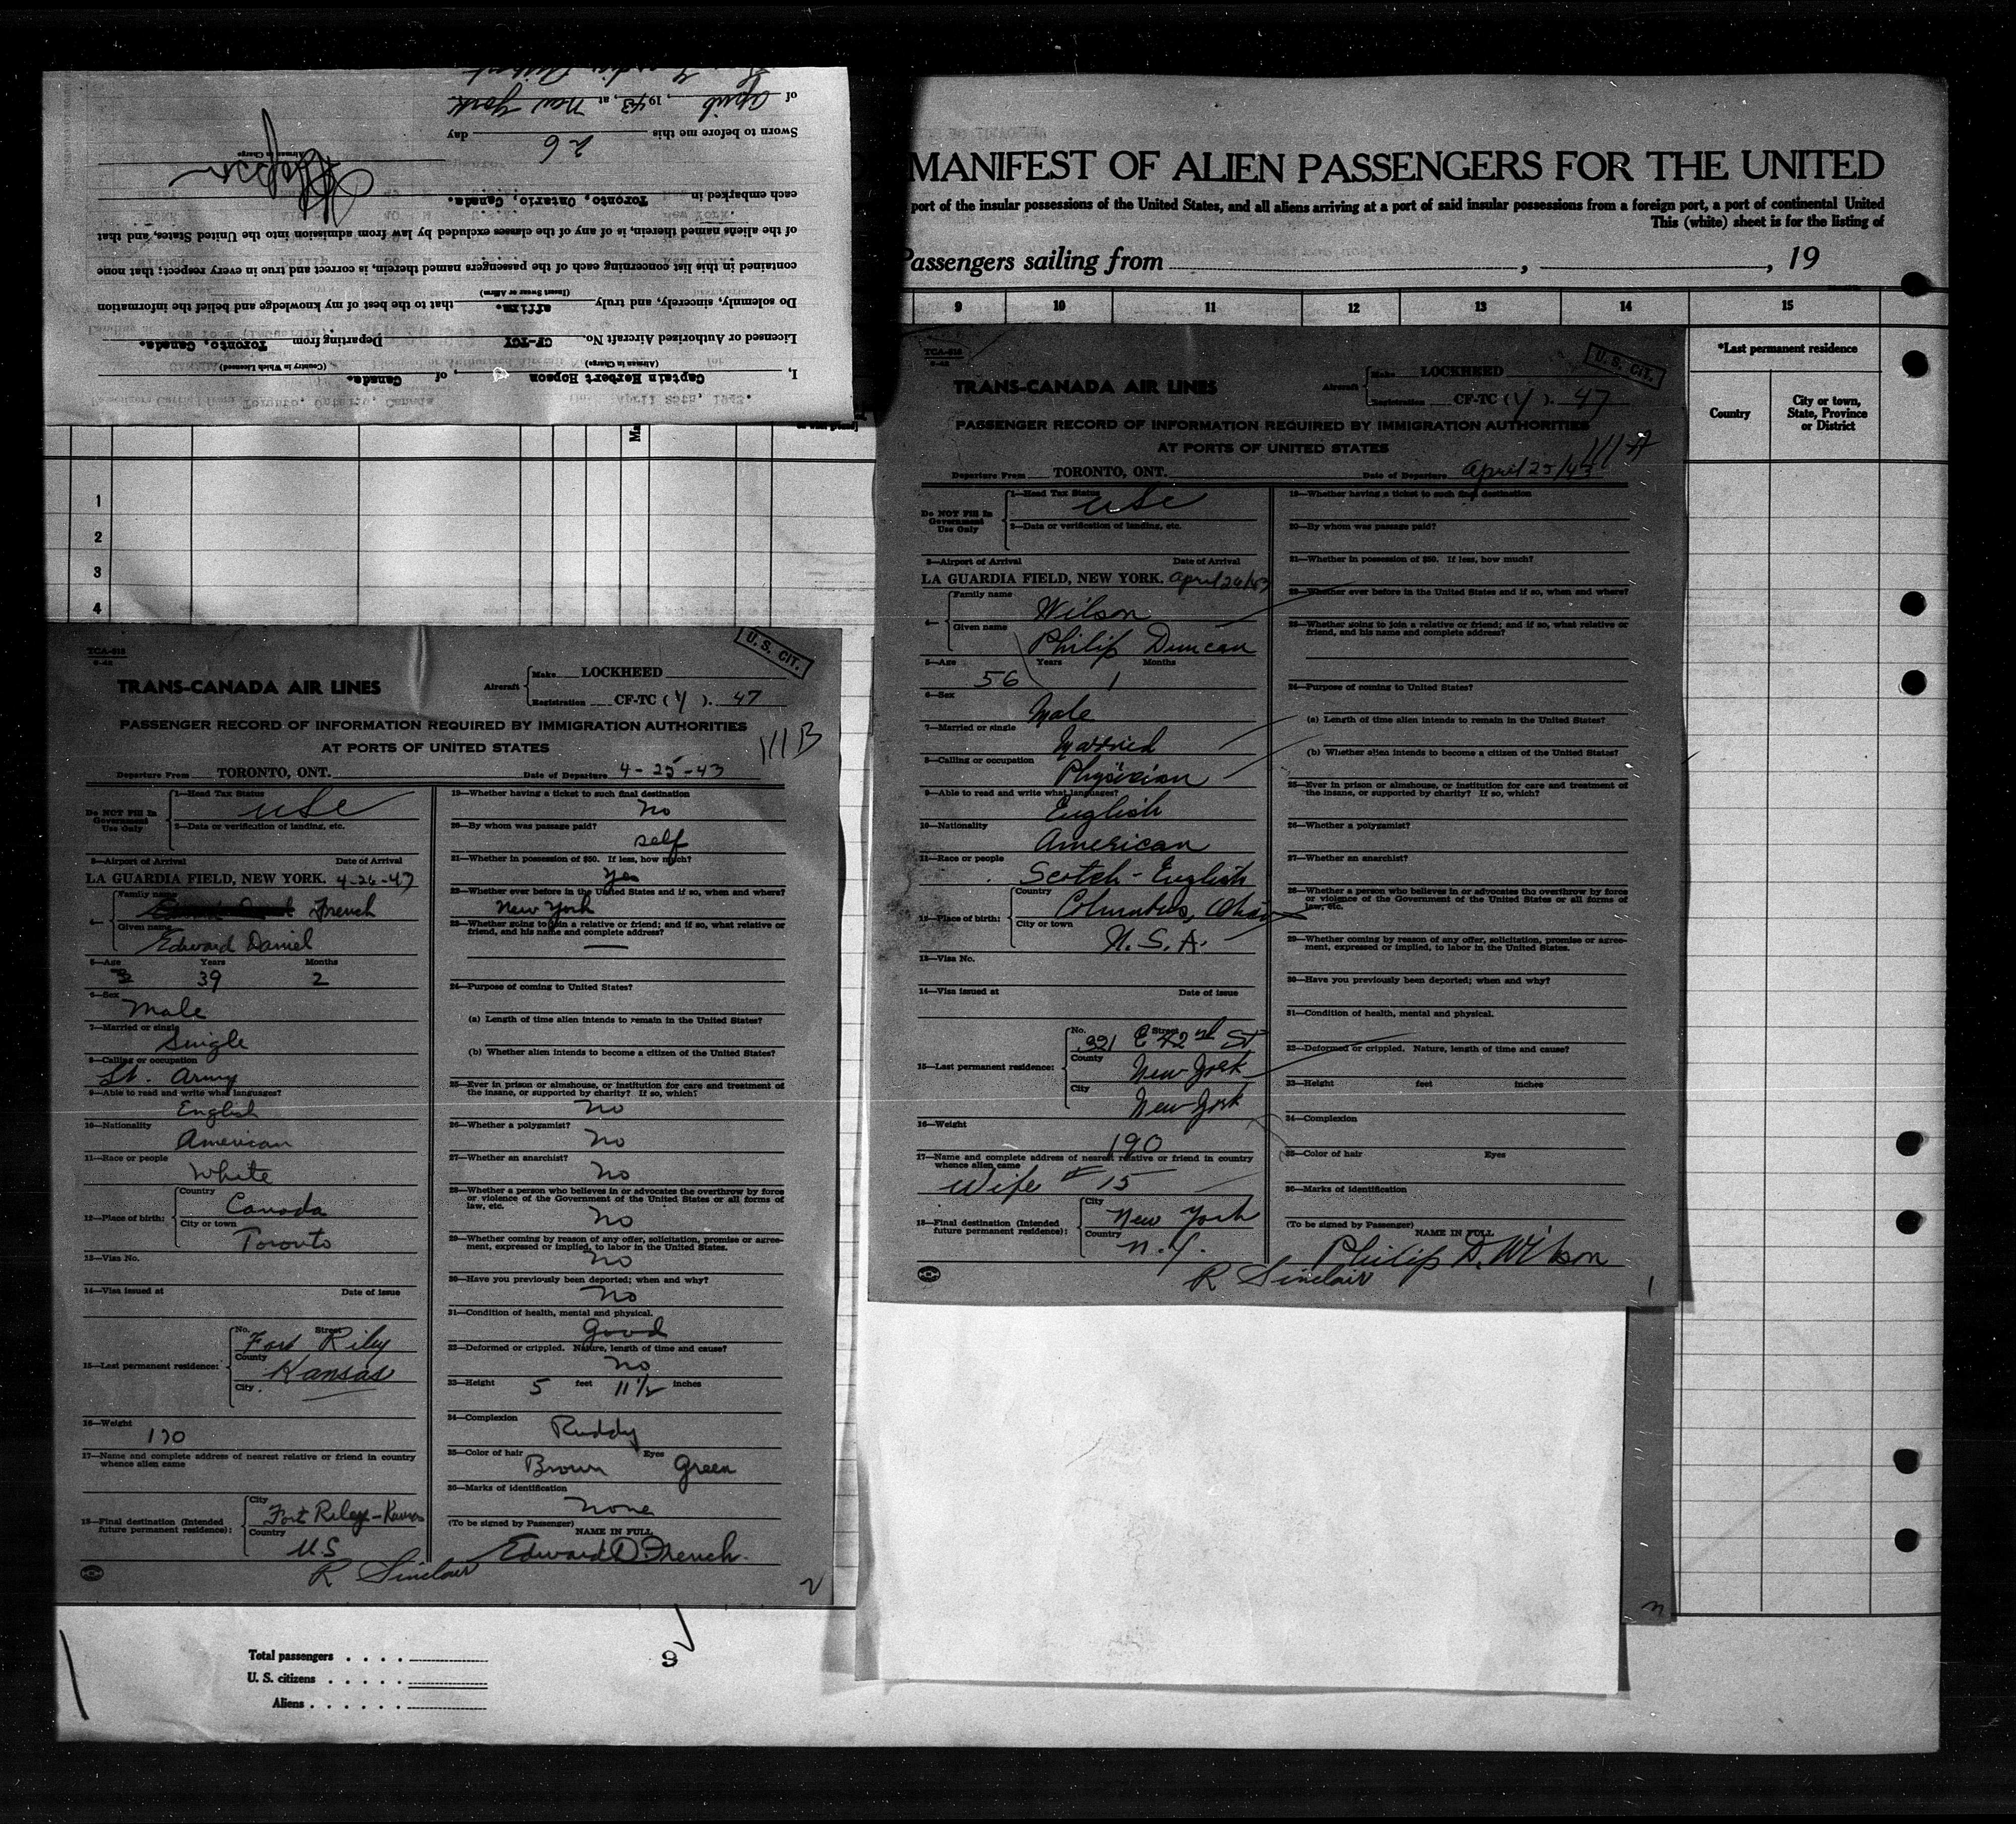 I, Captain Herbert Hopson, of Canada.
(Airman in Charge) (Country in Which Licensed)
Licensed or Authorized Aircraft No. CF-TCY Departing from Toronto, Canada.
Do solemnly, sincerely, and truly affirm. that to the best of my knowledge and belief the information
(Insert Swear or Affirm)
contained in this list concerning each of the passengers named therein, is correct and true in every respect; that none
of the aliens named therein, is of any of the classes excluded by law from admission into the United States, and that
each embarked in Toronto, Ontario, Canada.
Airman in Charge
Sworn to before me this 26 day
of April, 1943, at New York
MANIFEST OF ALIEN PASSENGERS FOR THE UNITED
port of the insular possessions of the United States, and all aliens arriving at a port of said insular possessions from a foreign port, a port of continental United
This (white) sheet is for the listing of
Passengers sailing from , , 19
9 10 11 12 13 14 15
*Last permanent residence
Country
City or town, State, Province or District
1
2
3
4
TCA-618
9-42
U. S. CIT.
TRANS-CANADA AIR LINES
Aircraft Make LOCKHEED
Registration CF-TC (Y). 47
PASSENGER RECORD OF INFORMATION REQUIRED BY IMMIGRATION AUTHORITIES
AT PORTS OF UNITED STATES
111 B
Departure From TORONTO, ONT. Date of Departure 4-25-43
Do NOT Fill In Government Use Only
1—Head Tax Status
USC
2—Data or verification of landing, etc.
3—Airport of Arrival Date of Arrival
LA GUARDIA FIELD, NEW YORK. 4-26-43
4— Family name French
Given name
Edward Daniel
5—Age Years Months
39 2
6—Sex
Male
7—Married or single
Single
8—Calling or occupation
Lt. Army
9—Able to read and write what languages?
English
10—Nationality
American
11—Race or people
White
12—Place of birth: Country
Canada
City or town
Toronto
13—Visa No.
14—Visa issued at Date of issue
15—Last permanent residence: No. Street
Fort Riley
County
Kansas
City
16—Weight
170
17—Name and complete address of nearest relative or friend in country whence alien came
18—Final destination (Intended future permanent residence): City
Fort Riley - Kansas
Country
U.S
R Sinclair
19—Whether having a ticket to such final destination
No
20—By whom was passage paid?
self
21—Whether in possession of $50. If less, how much?
Yes
22—Whether ever before in the United States and if so, when and where?
New York
23—Whether going to join a relative or friend; and if so, what relative or
friend, and his name and complete address?
24—Purpose of coming to United States?
(a) Length of time alien intends to remain in the United States?
(b) Whether alien intends to become a citizen of the United States?
25—Ever in prison or almshouse, or institution for care and treatment of
the insane, or supported by charity? If so, which?
No
26—Whether a polygamist?
No
27—Whether an anarchist?
No
28—Whether a person who believes in or advocates the overthrow by force
or violence of the Government of the United States or all forms of
law, etc.
No
29—Whether coming by reason of any offer, solicitation, promise or agree-
ment, expressed or implied, to labor in the United States.
No
30—Have you previously been deported; when and why?
No
31—Condition of health, mental and physical.
Good
32—Deformed or crippled. Nature, length of time and cause?
No
33—Height 5 feet 11½ inches
34—Complexion
Ruddy
35—Color of hair Eyes
Brown Green
36—Marks of identification
None
(To be signed by Passenger)
NAME IN FULL
Edward D. French.
2
Total passengers
U. S. citizens
Aliens
TCA-618
9-42
U. S. CIT.
TRANS-CANADA AIR LINES
Aircraft Make LOCKHEED
Registration CF-TC (Y). 47
PASSENGER RECORD OF INFORMATION REQUIRED BY IMMIGRATION AUTHORITIES
AT PORTS OF UNITED STATES
111-A
Departure From TORONTO, ONT. Date of Departure April 25/43
Do NOT Fill In Government Use Only
1—Head Tax Status
USC
2—Data or verification of landing, etc.
3—Airport of Arrival Date of Arrival
LA GUARDIA FIELD, NEW YORK. April 26/43
4— Family name
Wilson
Given name
Philip Duncan
5—Age Years Months
56 1
6—Sex
Male
7—Married or single
Married
8—Calling or occupation
Physician
9—Able to read and write what languages?
English
10—Nationality
American
11—Race or people
Scotch - English
12—Place of birth: Country
Columbus, Ohio
City or town
U. S. A.
13—Visa No.
14—Visa issued at Date of issue
15—Last permanent residence: No. Street
321 E 42nd St
County
New York
City
New York
16—Weight
190
17—Name and complete address of nearest relative or friend in country whence alien came
Wife # 15
18—Final destination (Intended future permanent residence): City
New York
Country
N.Y.
R Sinclair
19—Whether having a ticket to such final destination
20—By whom was passage paid?
21—Whether in possession of $50. If less, how much?
22—Whether ever before in the United States and if so, when and where?
23—Whether going to join a relative or friend; and if so, what relative or
friend, and his name and complete address?
24—Purpose of coming to United States?
(a) Length of time alien intends to remain in the United States?
(b) Whether alien intends to become a citizen of the United States?
25—Ever in prison or almshouse, or institution for care and treatment of
the insane, or supported by charity? If so, which?
26—Whether a polygamist?
27—Whether an anarchist?
28—Whether a person who believes in or advocates the overthrow by force
or violence of the Government of the United States or all forms of
law, etc.
29—Whether coming by reason of any offer, solicitation, promise or agree-
ment, expressed or implied, to labor in the United States.
30—Have you previously been deported; when and why?
31—Condition of health, mental and physical.
32—Deformed or crippled. Nature, length of time and cause?
33—Height feet inches
34—Complexion
35—Color of hair Eyes
36—Marks of identification
(To be signed by Passenger)
NAME IN FULL
Philip D. Wilson
1